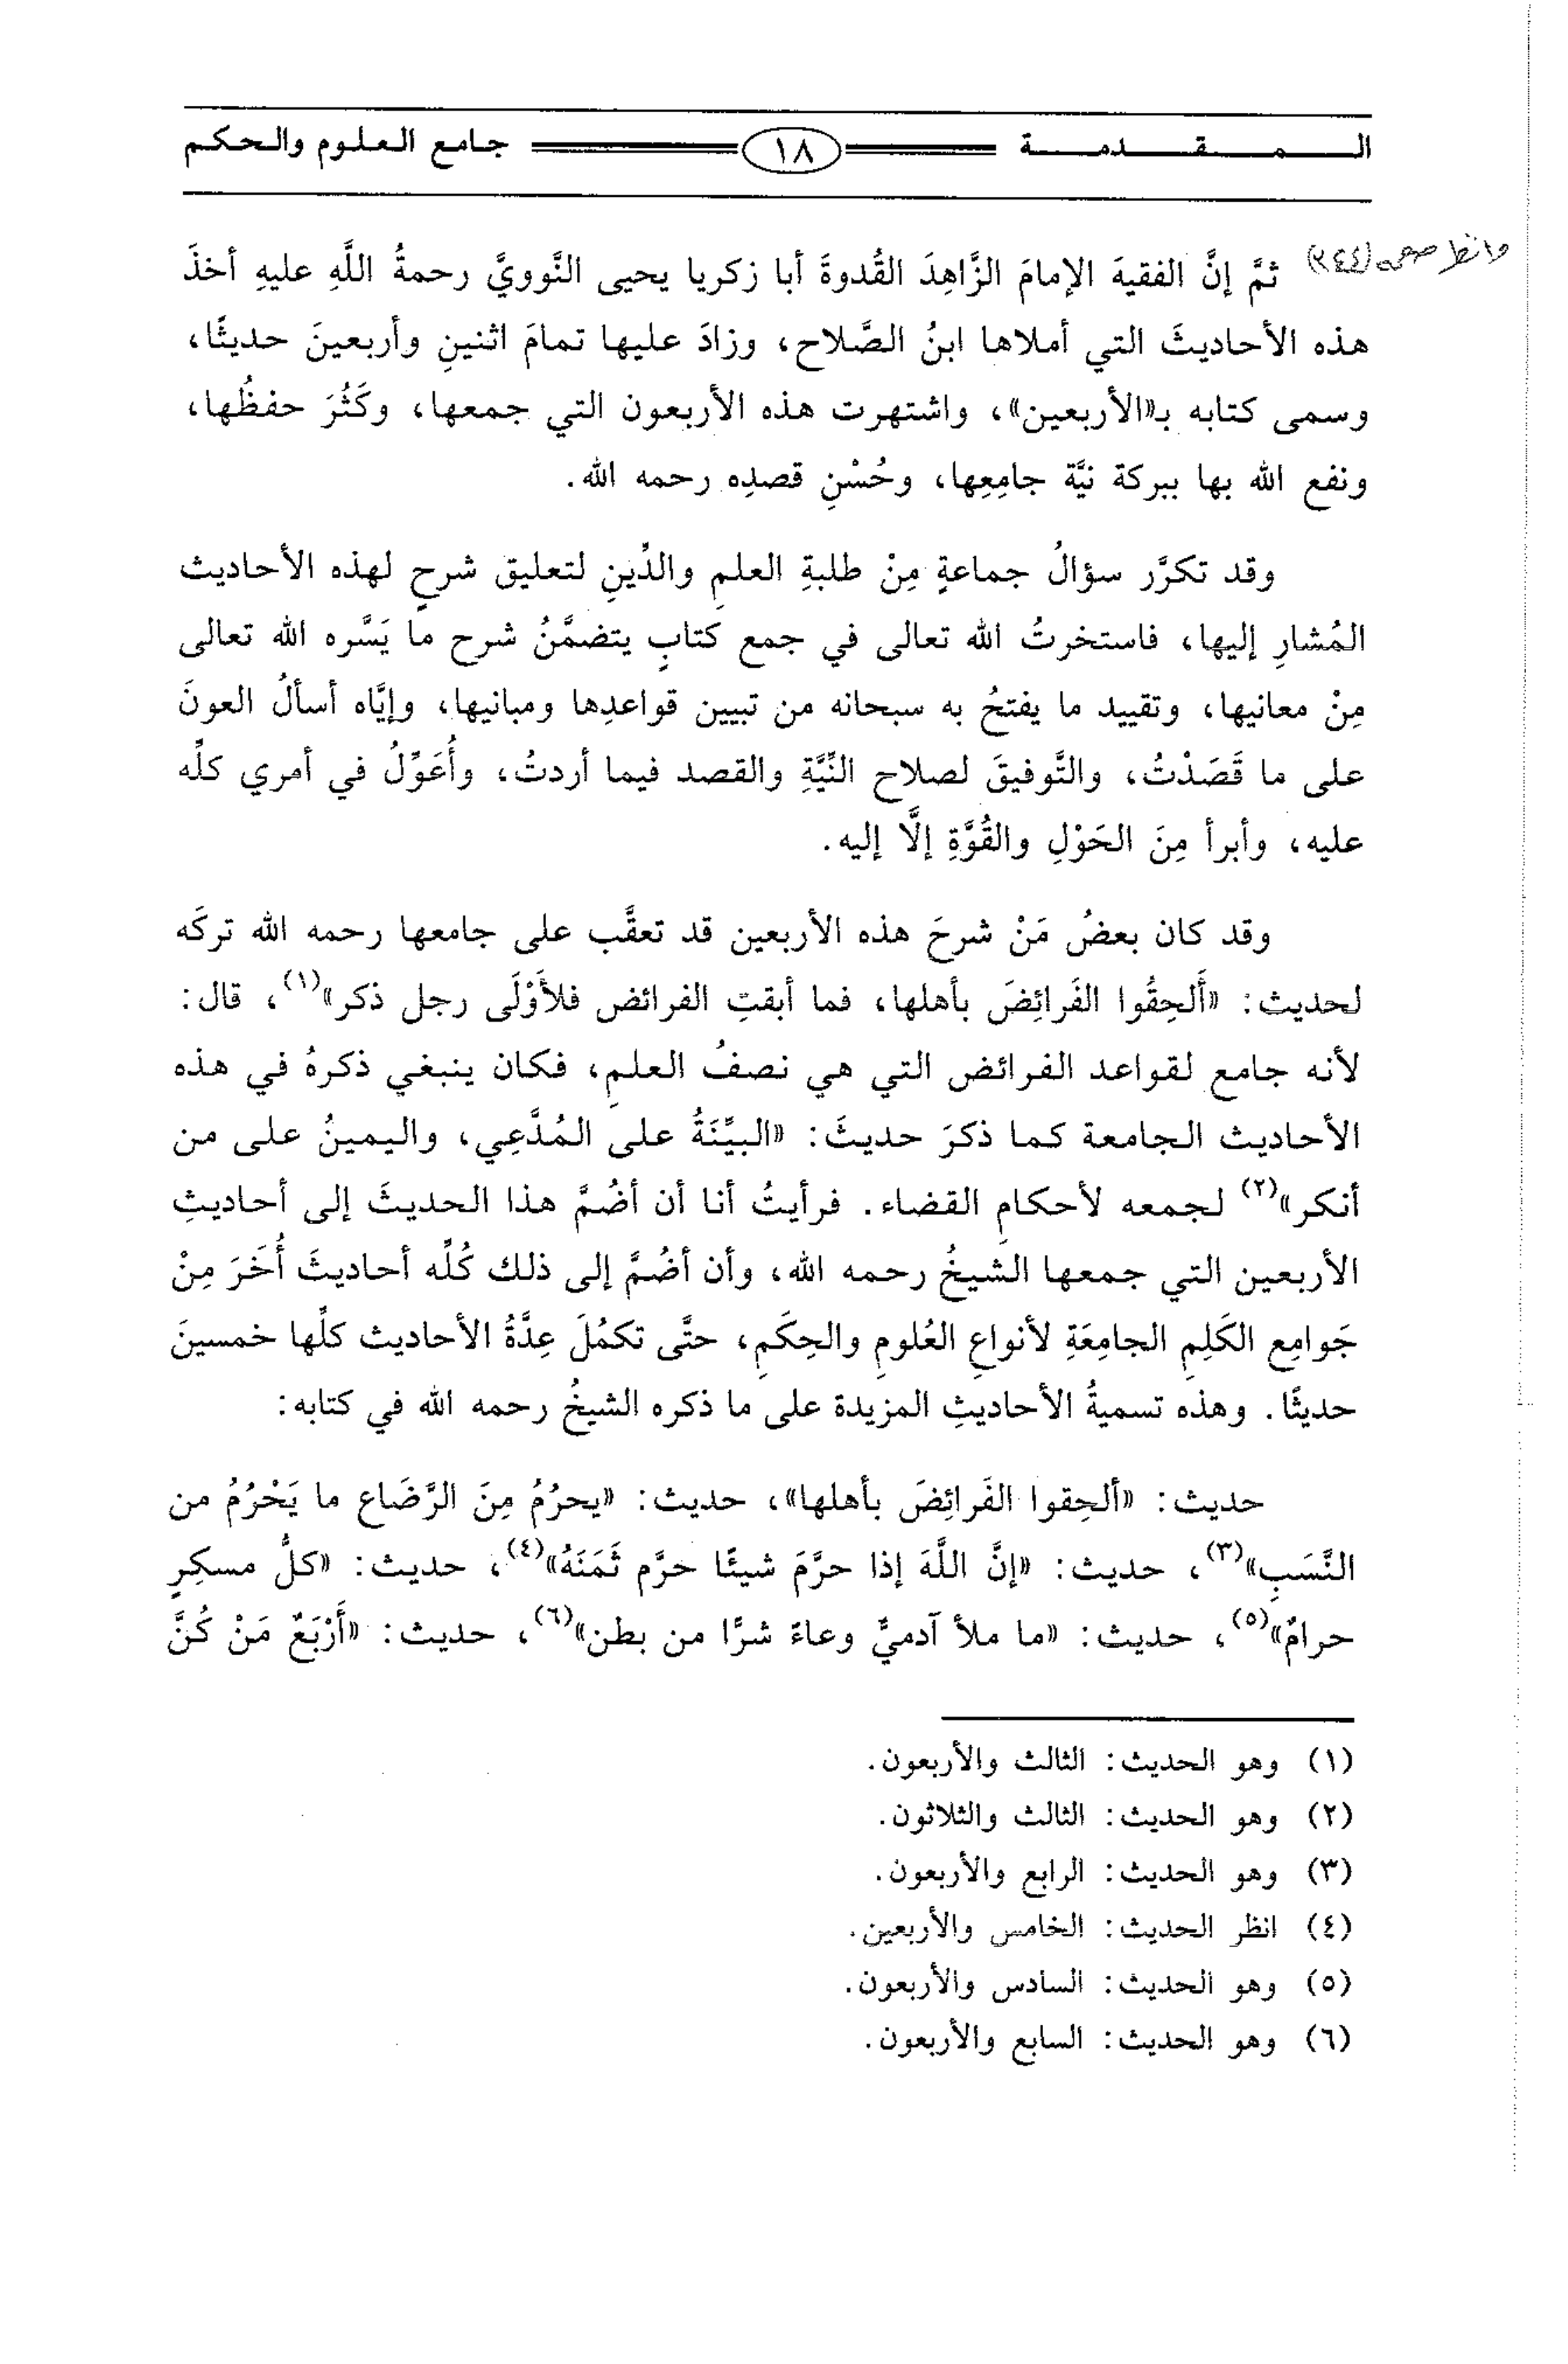 المقدمة ١٨ جامع العلوم والحكم
وانظر صـ (٢٤٤)
ثمَّ إنَّ الفقيهَ الإمامَ الزَّاهِدَ القُدوةَ أبا زكريا يحيى النَّوويَّ رحمةُ اللَّهِ عليهِ أخذَ
هذه الأحاديثَ التي أملاها ابنُ الصَّلاح، وزادَ عليها تمامَ اثنينِ وأربعينَ حديثًا،
وسمى كتابه بـ«الأربعين»، واشتهرت هذه الأربعون التي جمعها، وكَثُرَ حفظُها،
ونفع الله بها ببركة نيَّة جامِعِها، وحُسْنِ قصدِه رحمه الله.
وقد تكرَّر سؤالُ جماعةٍ مِنْ طلبةِ العلمِ والدِّينِ لتعليق شرحٍ لهذه الأحاديث
المُشارِ إليها، فاستخرتُ الله تعالى في جمع كتابٍ يتضمَّنُ شرح ما يَسَّره الله تعالى
مِنْ معانيها، وتقييد ما يفتحُ به سبحانه من تبيين قواعدِها ومبانيها، وإيَّاه أسألُ العونَ
على ما قَصَدْتُ، والتَّوفيقَ لصلاح النِّيَّةِ والقصد فيما أردتُ، وأُعَوِّلُ في أمري كلِّه
عليه، وأبرأ مِنَ الحَوْلِ والقُوَّةِ إلَّا إليه.
وقد كان بعضُ مَنْ شرحَ هذه الأربعين قد تعقَّب على جامعها رحمه الله تركَه
لحديث: «أَلحِقُوا الفَرائِضَ بأهلها، فما أبقتِ الفرائض فلأَوْلَى رجل ذكر»(١)، قال:
لأنه جامع لقواعد الفرائض التي هي نصفُ العلمِ، فكان ينبغي ذكرهُ في هذه
الأحاديث الجامعة كما ذكرَ حديثَ: «البيِّنَةُ على المُدَّعِي، واليمينُ على من
أنكر»(٢) لجمعه لأحكامِ القضاء. فرأيتُ أنا أن أضُمَّ هذا الحديثَ إلى أحاديثِ
الأربعين التي جمعها الشيخُ رحمه الله، وأن أضُمَّ إلى ذلك كُلِّه أحاديثَ أُخَرَ مِنْ
جَوامِع الكَلِمِ الجامِعَةِ لأنواعِ العُلومِ والحِكَمِ، حتَّى تكمُلَ عِدَّةُ الأحاديث كلِّها خمسينَ
حديثًا. وهذه تسميةُ الأحاديثِ المزيدة على ما ذكره الشيخُ رحمه الله في كتابه:
حديث: «ألحِقوا الفَرائِضَ بأهلها»، حديث: «يحرُمُ مِنَ الرَّضَاع ما يَحْرُمُ من
النَّسَبِ»(٣)، حديث: «إنَّ اللَّهَ إذا حرَّمَ شيئًا حرَّم ثَمَنَهُ»(٤)، حديث: «كلُّ مسكِرٍ
حرامٌ»(٥)، حديث: «ما ملأ آدميٌّ وعاءً شرًّا من بطن»(٦)، حديث: «أَرْبَعٌ مَنْ كُنَّ
(١) وهو الحديث: الثالث والأربعون.
(٢) وهو الحديث: الثالث والثلاثون.
(٣) وهو الحديث: الرابع والأربعون.
(٤) انظر الحديث: الخامس والأربعين.
(٥) وهو الحديث: السادس والأربعون.
(٦) وهو الحديث: السابع والأربعون.